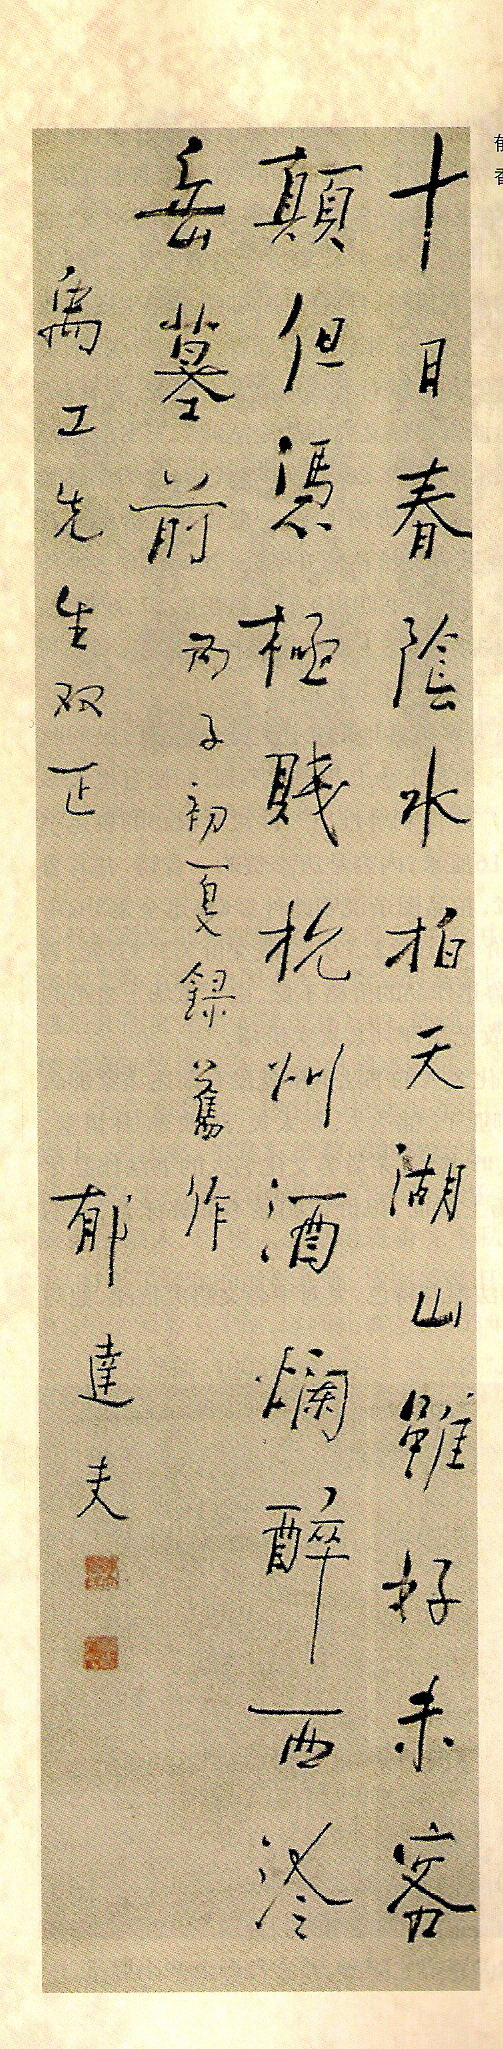 十日春陰水拍天湖山雖好未容
顛但憑極賤杭州酒爛醉西泠
岳墓前 丙子初夏録舊作
禹工先生双正 郁達夫